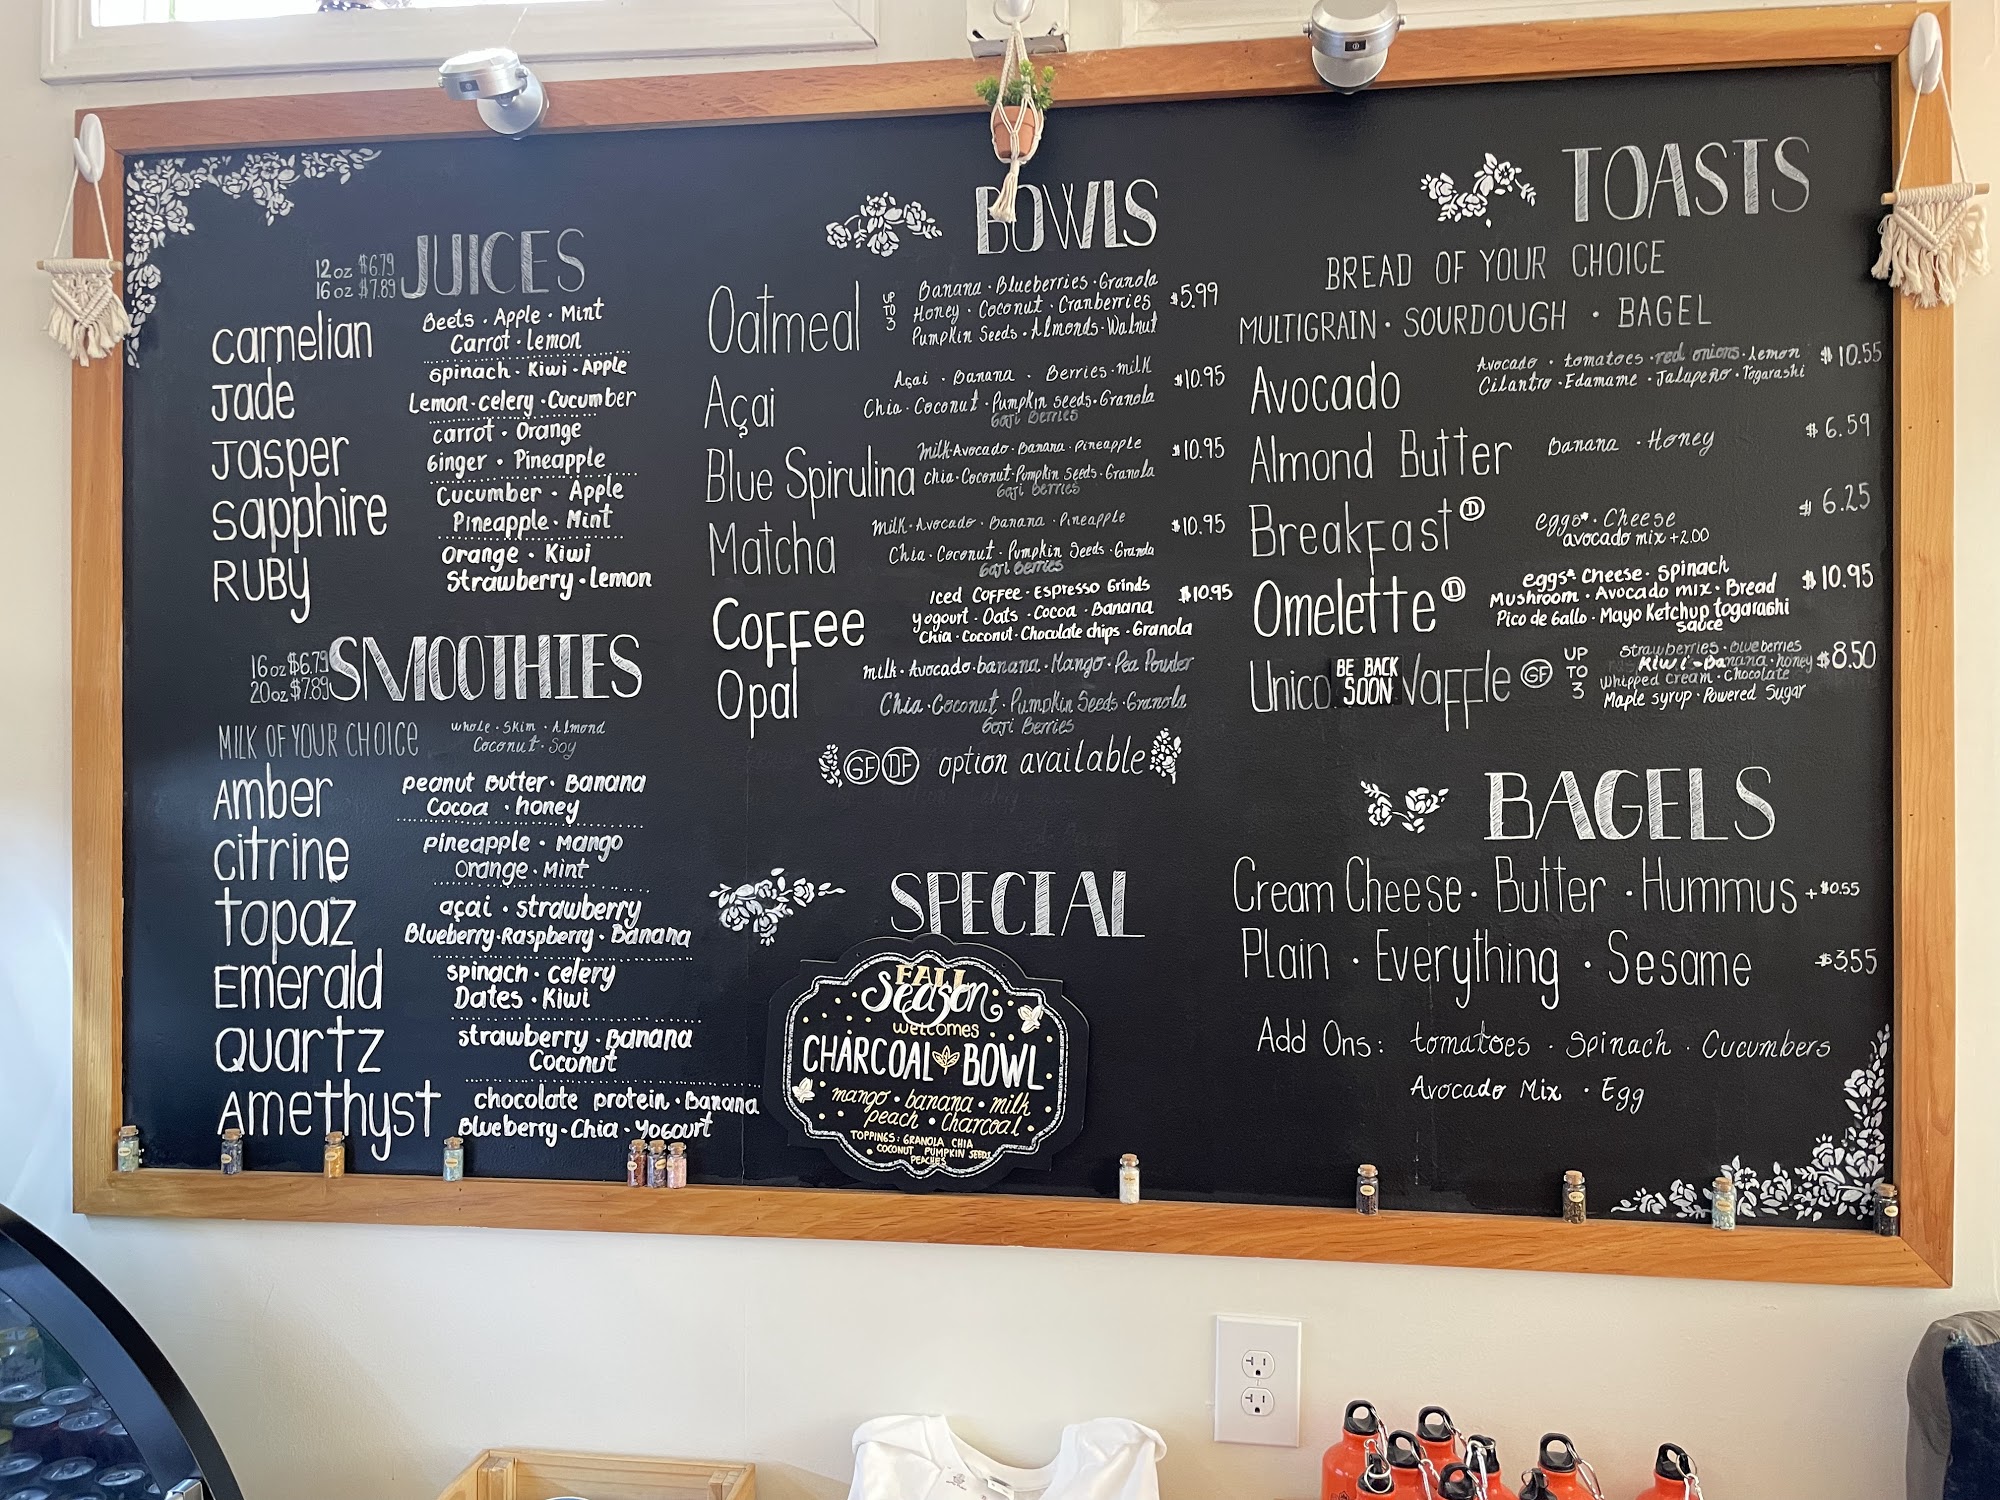 JUICES
12oz $6.79
16oz $7.89
Carnelian
Beets · Apple · Mint
Carrot · Lemon
Jade
Spinach · Kiwi · Apple
Lemon · celery · Cucumber
Jasper
carrot · Orange
Ginger · Pineapple
Sapphire
Cucumber · Apple
Pineapple · Mint
RUBY
Orange · Kiwi
Strawberry · Lemon
SMOOTHIES
16oz $6.79
20oz $7.89
MILK OF YOUR CHOICE
whole · Skim · Almond
Coconut · Soy
Amber
peanut Butter · Banana
Cocoa · honey
citrine
pineapple · Mango
Orange · Mint
topaz
açai · strawberry
Blueberry · Raspberry · Banana
Emerald
spinach · celery
Dates · Kiwi
Quartz
strawberry · Banana
Coconut
Amethyst
chocolate protein · Banana
Blueberry · Chia · Yogourt
BOWLS
Oatmeal
UP
TO
3
Banana · Blueberries · Granola
Honey · Coconut · Cranberries
Pumpkin Seeds · Almonds · Walnut
$5.99
Açai
Açai · Banana · Berries · milk
Chia · Coconut · Pumpkin seeds · Granola
Goji Berries
$10.95
Blue Spirulina
Milk · Avocado · Banana · Pineapple
chia · Coconut · Pumpkin Seeds · Granola
Goji Berries
$10.95
Matcha
Milk · Avocado · Banana · Pineapple
Chia · Coconut · Pumpkin Seeds · Granola
Goji Berries
$10.95
Coffee
Iced Coffee · Espresso Grinds
yogourt · Oats · Cocoa · Banana
Chia · Coconut · Chocolate chips · Granola
$10.95
Opal
milk · Avocado · banana · Mango · Pea Powder
Chia · Coconut · Pumpkin Seeds · Granola
Goji Berries
GF DF option available
SPECIAL
FALL
Season
welcomes
CHARCOAL BOWL
mango · banana · milk
peach · charcoal
TOPPINGS: GRANOLA CHIA
COCONUT PUMPKIN SEEDS
PEACHES
TOASTS
BREAD OF YOUR CHOICE
MULTIGRAIN · SOURDOUGH · BAGEL
Avocado
Avocado · tomatoes · red onions · lemon
Cilantro · Edamame · Jalapeño · Togarashi
$10.55
Almond Butter
Banana · Honey
$6.59
Breakfast D
eggs* · Cheese
avocado mix +2.00
$6.25
Omelette D
eggs* Cheese · Spinach
Mushroom · Avocado mix · Bread
Pico de Gallo · Mayo Ketchup togarashi
sauce
$10.95
Unico
BE BACK
SOON
Waffle GF
UP
TO
3
strawberries · blueberries
Kiwi · Banana · honey
whipped cream · Chocolate
Maple syrup · Powered Sugar
$8.50
BAGELS
Cream Cheese · Butter · Hummus +$0.55
Plain · Everything · Sesame $3.55
Add Ons: tomatoes · Spinach · Cucumbers
Avocado Mix · Egg